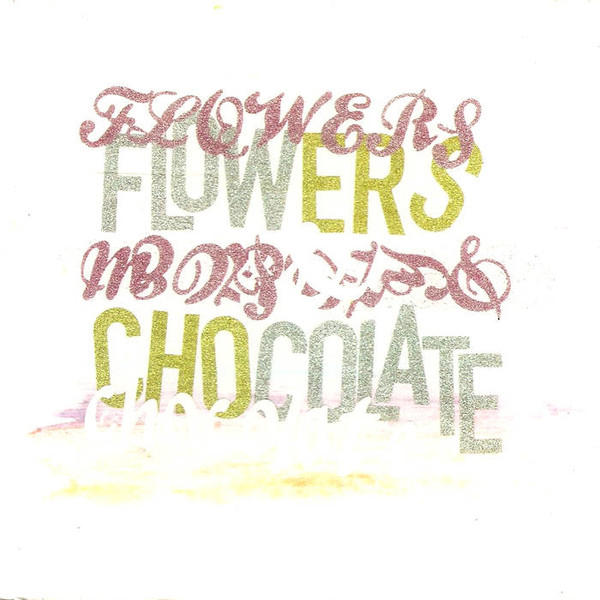 FLOWERS
FLOWERS
CHOCOLATE
chocolate